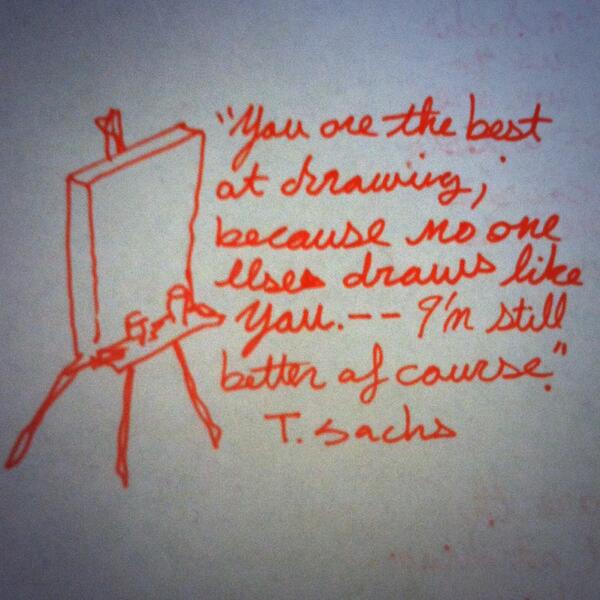 "You are the best
at drawing,
because no one
else draws like
You.-- I'm still
better of course."
T. Sachs